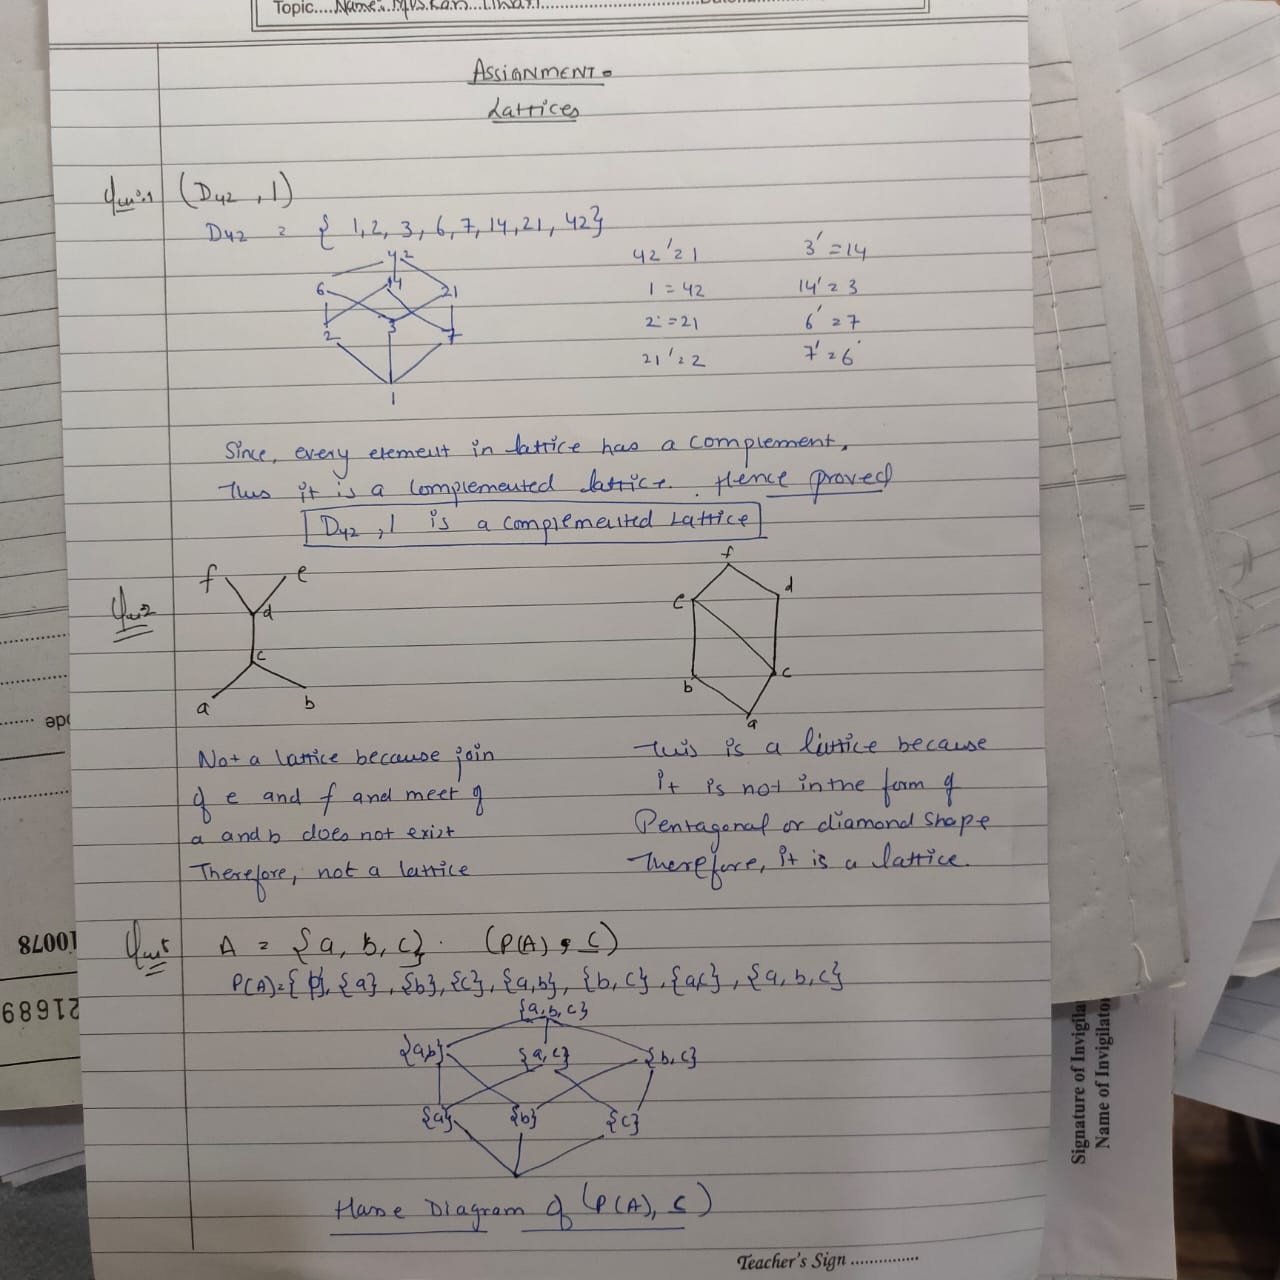 Topic....Name:
ASSIGNMENT.
Lattices
(D42 , 1)
D42 = { 1, 2, 3, 6, 7, 14, 21, 42}
42
6 14 21
2 3 7
1
42' = 1
1 = 42
2' = 21
21' = 2
3' = 14
14' = 3
6' = 7
7' = 6
Since, every element in lattice has a complement,
Thus it is a complemented lattice. Hence proved
D42 , 1 is a complemented Lattice
Que2
f e
d
c
a b
f
e d
b c
a
Not a lattice because join
of e and f and meet of
a and b does not exist
Therefore, not a lattice
This is a lattice because
it is not in the form of
Pentagonal or diamond shape
Therefore, it is a lattice.
A = {a, b, c}. (P(A), ⊆)
P(A)={ ϕ}, {a}, {b}, {c}, {a,b}, {b, c}, {a,c}, {a, b, c}
{a, b, c}
{ab} {a, c} {b, c}
{a} {b} {c}
Hasse Diagram of (P(A), ⊆)
Teacher's Sign ...............
Signature of Invigila
Name of Invigilato
10078
21689